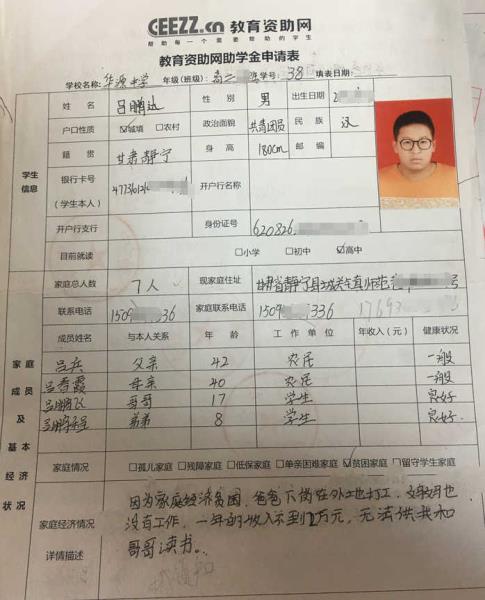 CEEZZ.cn 教育资助网
帮助每一个需要帮助的学生
教育资助网助学金申请表
学校名称: 华源中学 年级(班级): 高二 学号: 38 填表日期:
姓名 吕鹏达 性别 男 出生日期 2
户口性质 ☑城填 □农村 政治面貌 共青团员 民族 汉
籍贯 甘肃静宁 身高 180cm 邮编
学生信息
银行卡号(学生本人) 4773612 开户行名称
开户行支行 身份证号 620826
目前就读 □小学 □初中 ☑高中
家庭总人数 7人 现家庭住址 甘肃省静宁县城关镇 号
联系电话 1509 36 家庭联系电话 1509 336 17693
成员姓名 与本人关系 年龄 工作单位 年收入(元) 健康状况
家庭成员及基本经济状况
吕兵 父亲 42 农民 一般
吕香霞 母亲 40 农民 一般
吕鹏飞 哥哥 17 学生 良好
吕鹏 弟弟 8 学生 良好
家庭情况 □孤儿家庭 □残障家庭 □低保家庭 □单亲困难家庭 ☑贫困家庭 □留守学生家庭
家庭经济情况详情描述
因为家庭经济贫困,爸爸下岗在外地打工,妈妈也
没有工作,一年的收入不到2万元,无法供我和
哥哥读书。